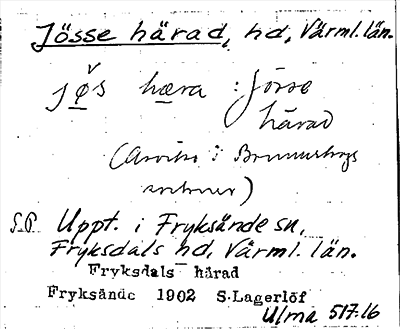 Jösse härad, hd, Värml. län.
jø̌s hæra : Jösse
härad
(Arvika i Brunnskogs
socknar)
S.P. Uppt. i Fryksände sn,
Fryksdals hd, Värml. län.
Fryksdals härad
Fryksände 1902 S.Lagerlöf
Ulma 517:16